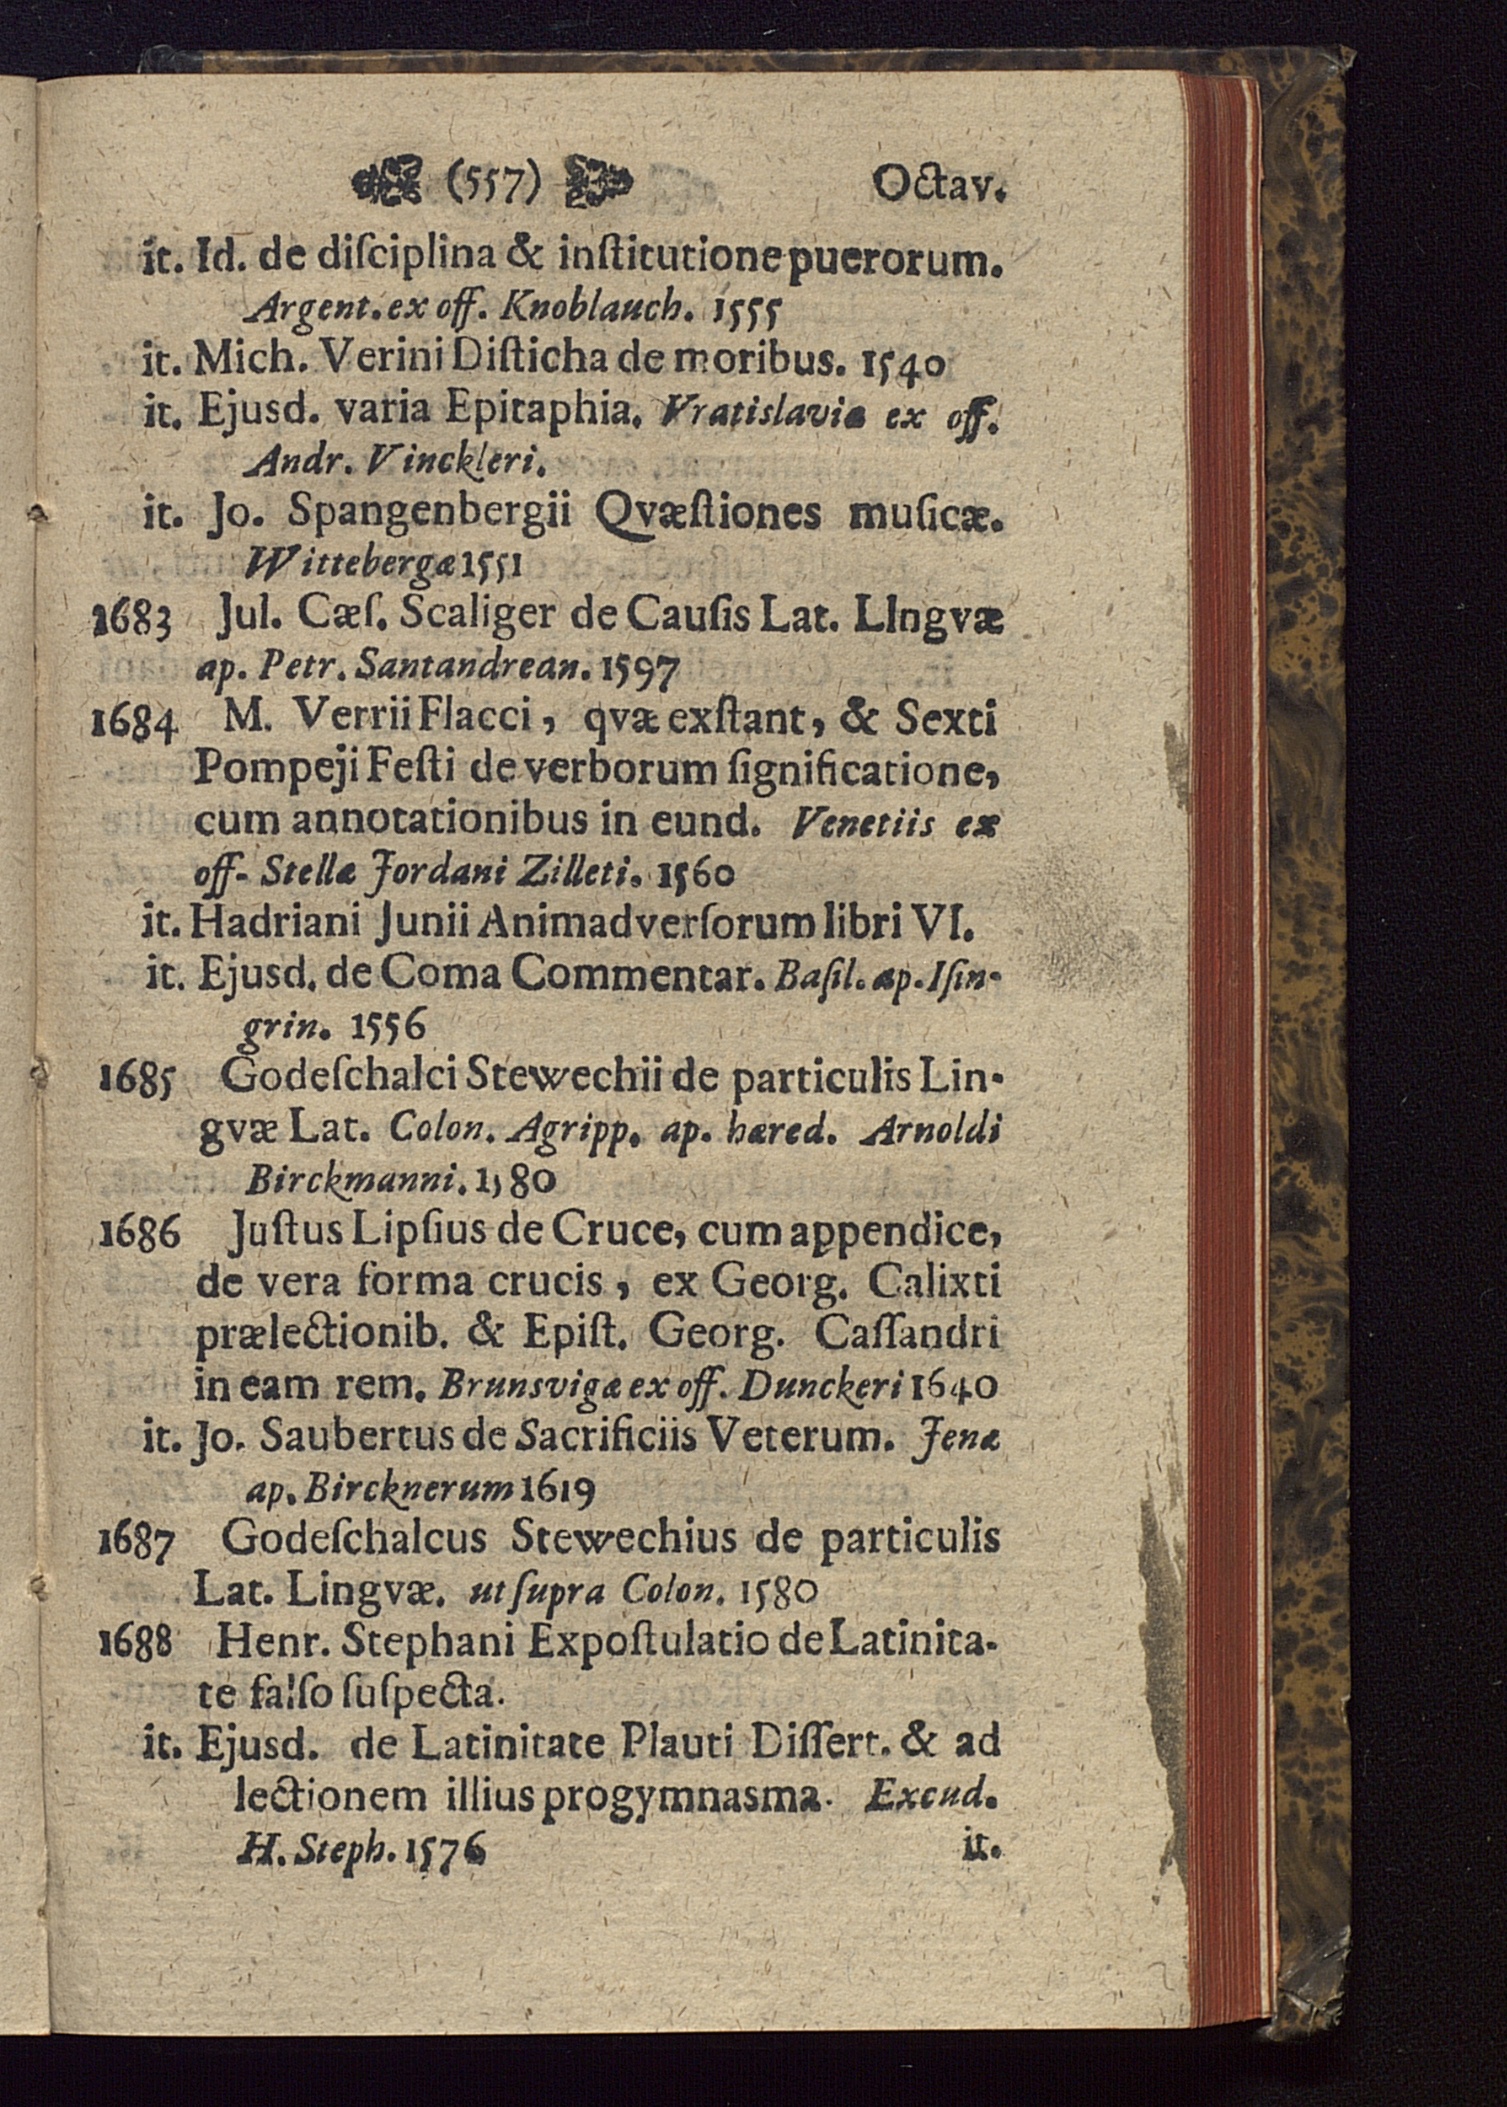 (557) Octav.
it. Id. de diſciplina & inſtitutione puerorum.
Argent. ex off. Knoblauch. 1555
it. Mich. Verini Diſticha de moribus. 1540
it. Ejusd. varia Epitaphia. Vratislaviæ ex off.
Andr. Vinckleri.
it. Jo. Spangenbergii Qvæſtiones muſicæ.
Wittebergæ 1551
1683 Jul. Cæſ. Scaliger de Cauſis Lat. LIngvæ
ap. Petr. Santandrean. 1597
1684 M. Verrii Flacci, qvæ exſtant, & Sexti
Pompeji Feſti de verborum ſignificatione,
cum annotationibus in eund. Venetiis ex
off- Stellæ Jordani Zilleti. 1560
it. Hadriani Junii Animadverſorum libri VI.
it. Ejusd. de Coma Commentar. Baſil. ap. Iſin-
grin. 1556
1685 Godeſchalci Stewechii de particulis Lin-
gvæ Lat. Colon. Agripp. ap. hæred. Arnoldi
Birckmanni. 1580
1686 Juſtus Lipſius de Cruce, cum appendice,
de vera forma crucis, ex Georg. Calixti
prælectionib. & Epiſt. Georg. Caſſandri
in eam rem. Brunsvigæ ex off. Dunckeri 1640
it. Jo. Saubertus de Sacrificiis Veterum. Jenæ
ap. Bircknerum 1619
1687 Godeſchalcus Stewechius de particulis
Lat. Lingvæ. ut ſupra Colon. 1580
1688 Henr. Stephani Expoſtulatio de Latinita-
te falſo ſuſpecta.
it. Ejusd. de Latinitate Plauti Diſſert. & ad
lectionem illius progymnasma. Excud.
H. Steph. 1576 it.